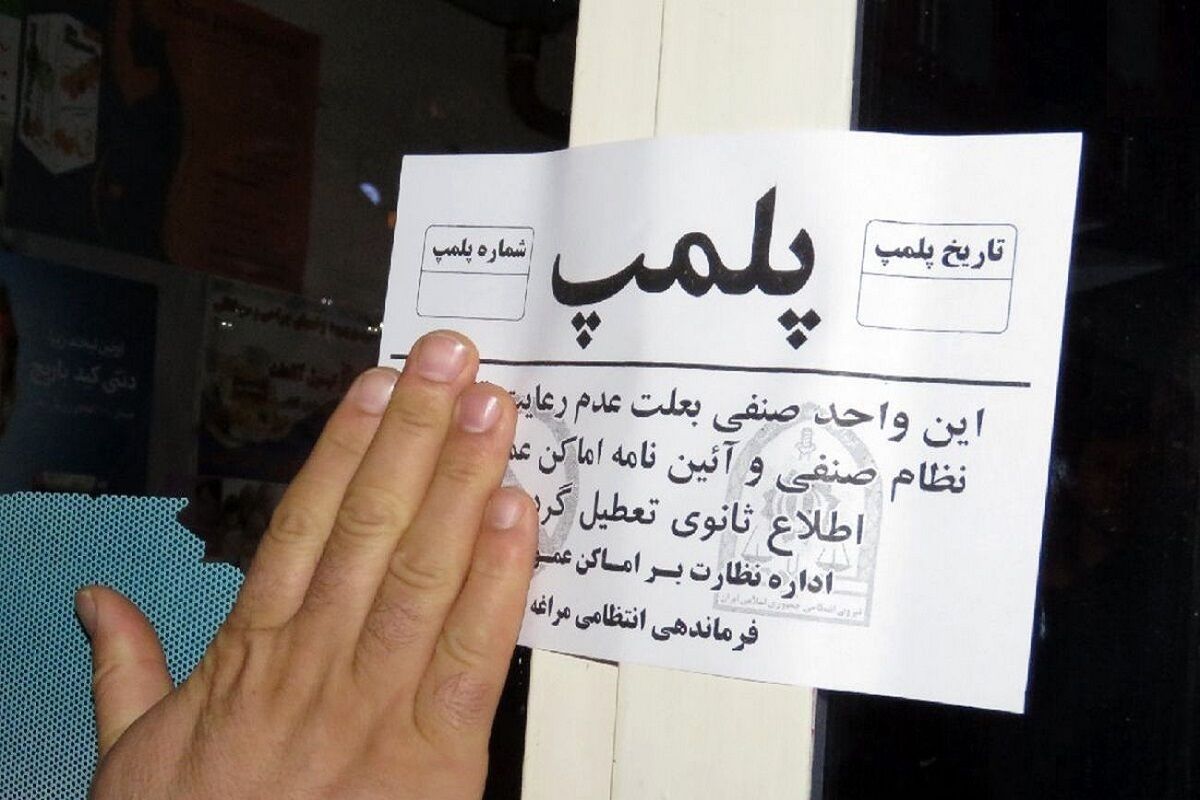 تاریخ پلمپ
پلمپ
شماره پلمپ
این واحد صنفی بعلت عدم رعایت
نظام صنفی و آئین نامه اماکن
اطلاع ثانوی تعطیل
اداره نظارت بر اماکن
فرماندهی انتظامی مراغه
نیروی انتظامی جمهوری اسلامی ایران